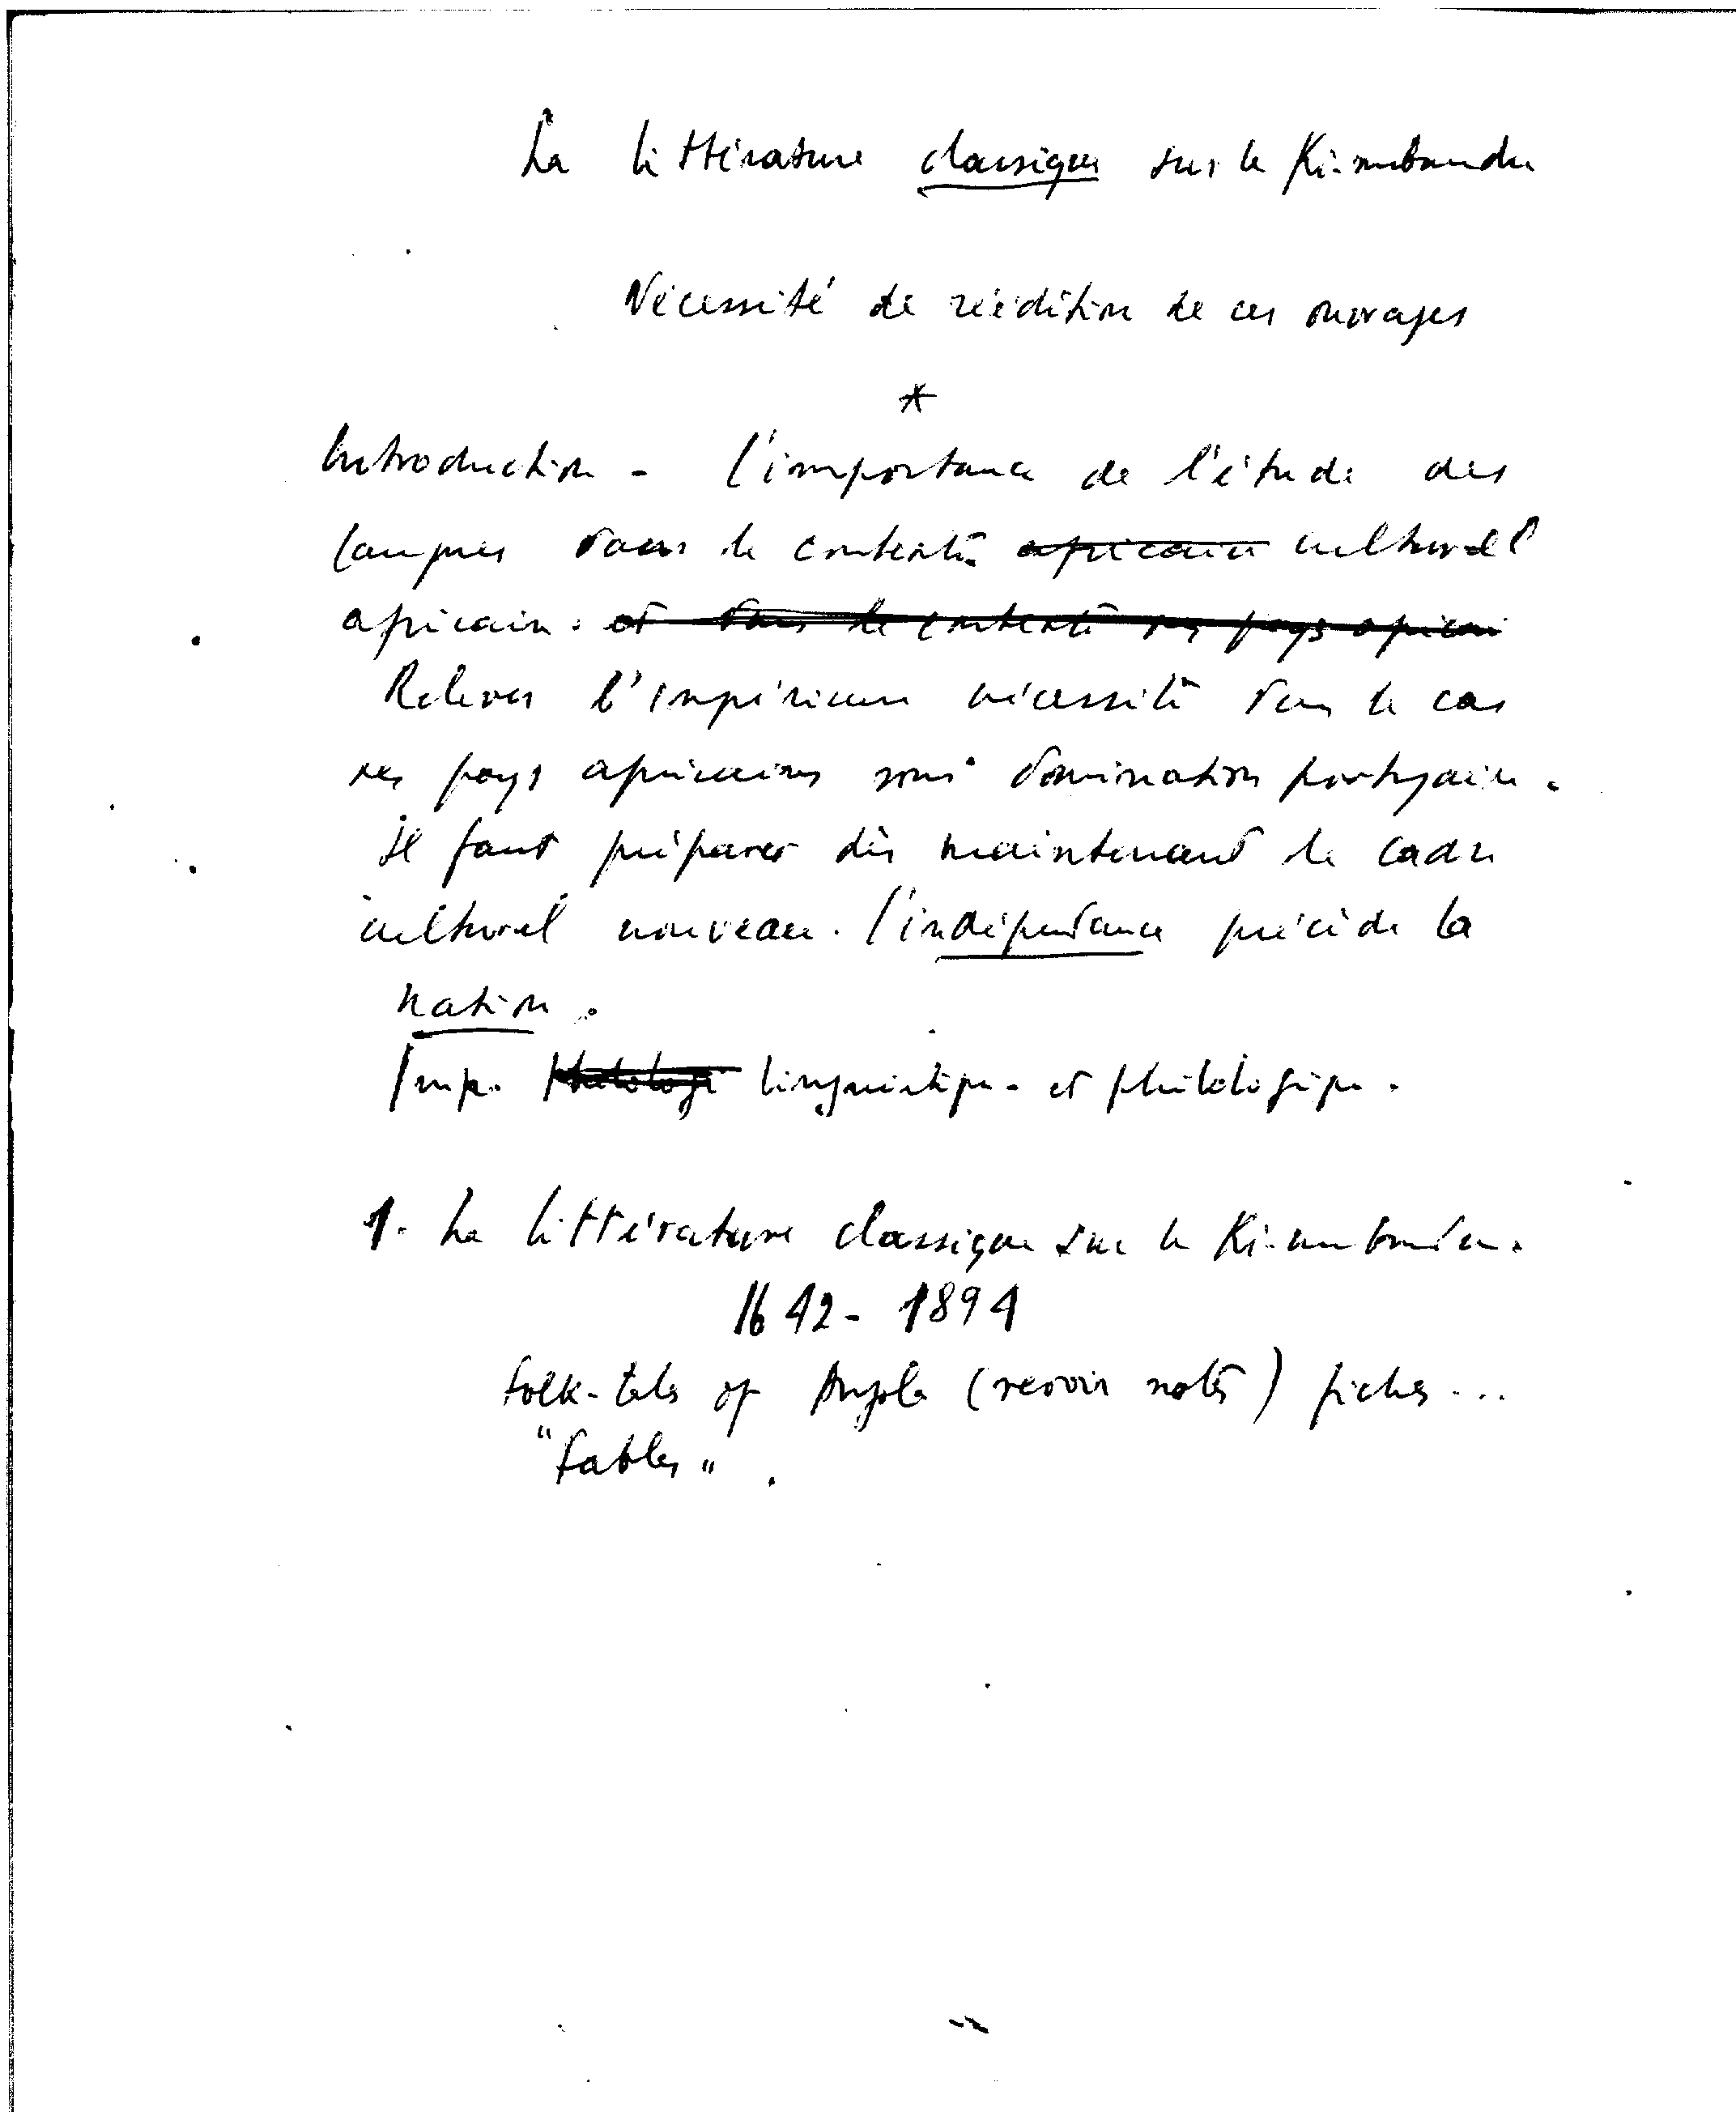 La littérature classique sur le Ki-mbundu
Nécessité de réédition de ces ouvrages
*
Introduction - l'importance de l'étude des
langues dans le contexte africain culturel
africain. et dans le contexte des pays africai
Relever l'impérieuse nécessité dans le cas
des pays africains sous domination portugaise.
Il faut préparer dès maintenant le cadre
culturel nouveau. L'indépendance précède la
nation.
Imp. Philologi linguistique et philologique.
1. La littérature classique sur le Ki-mbundu.
1642 - 1894
Folk-tales of Angola (revoir notes) fiches ...
"Fables".